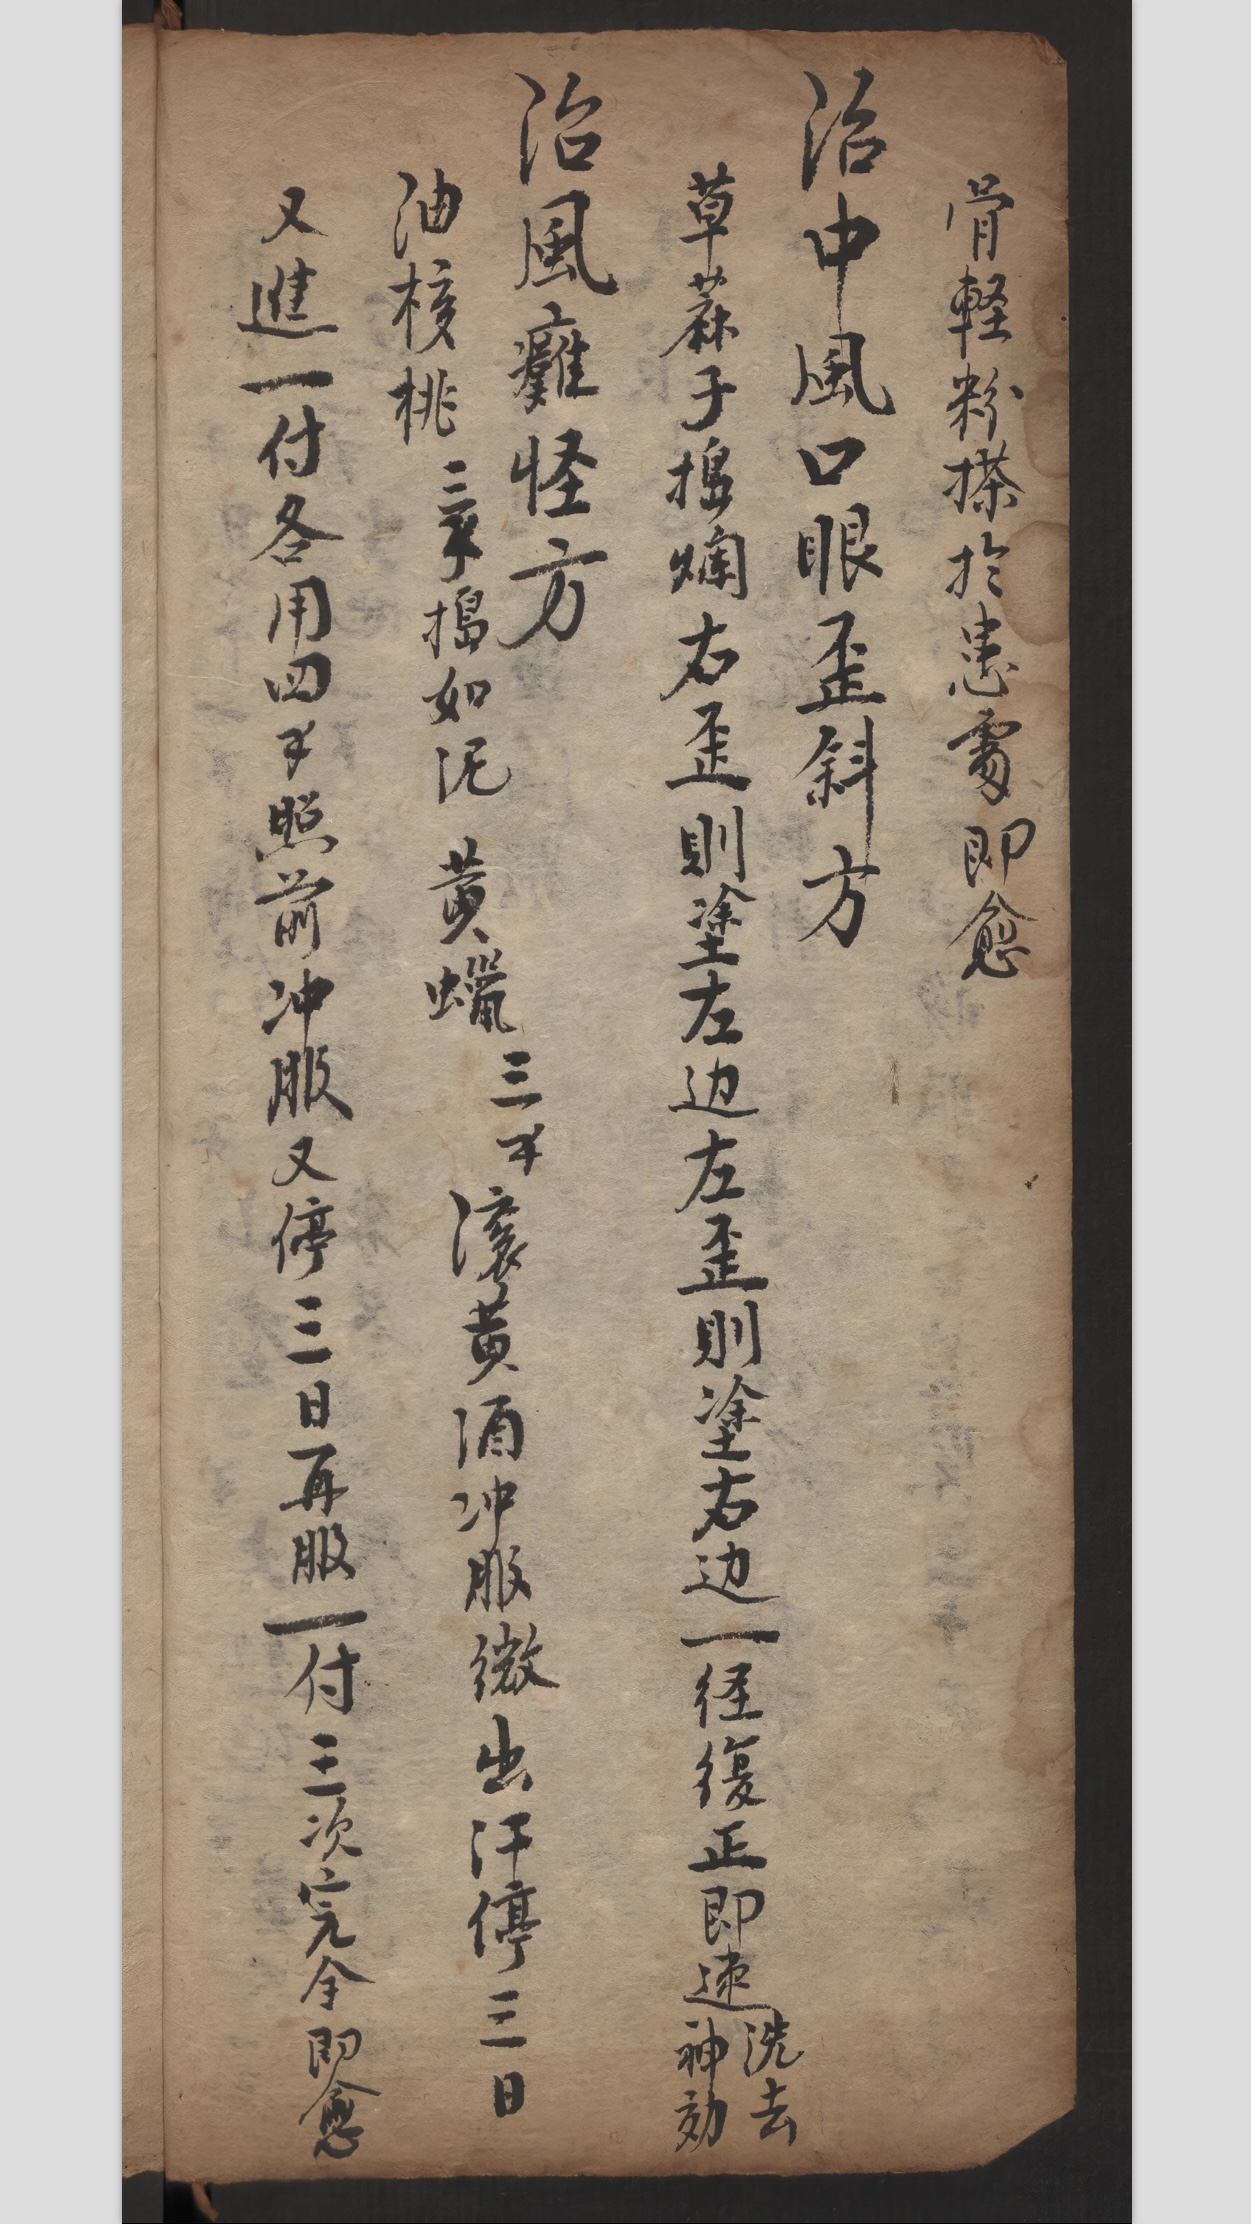 骨軽粉搽扵患處即愈
治中風口眼歪斜方
草蔴子搗爛右歪則塗左边左歪則塗右边一径復正即速洗去神効
治風癱怪方
油核桃三个搗如泥 黄蠟三子滚黄酒冲服微出汗停三日
又進一付各用四子照前冲服又停三日再服一付三次完全即愈